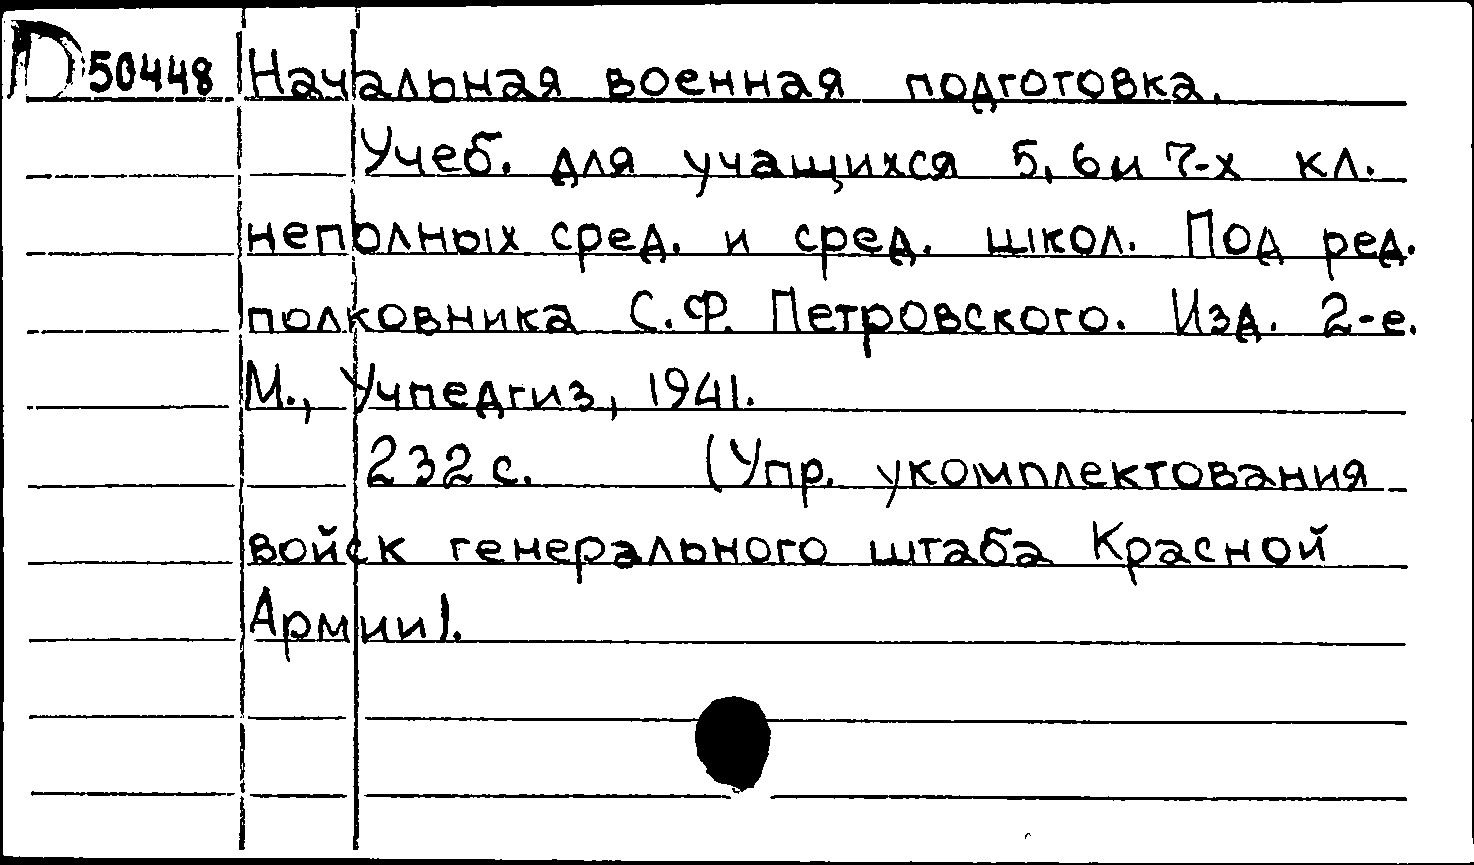 D 50448 Начальная военная подготовка.
Учеб. для учащихся 5, 6 и 7-х кл.
неполных сред. и сред. школ. Под ред.
полковника С.Ф. Петровского. Изд. 2-е.
М., Учпедгиз, 1941.
232 с. (Упр. укомплектования
войск генерального штаба Красной
Армии).